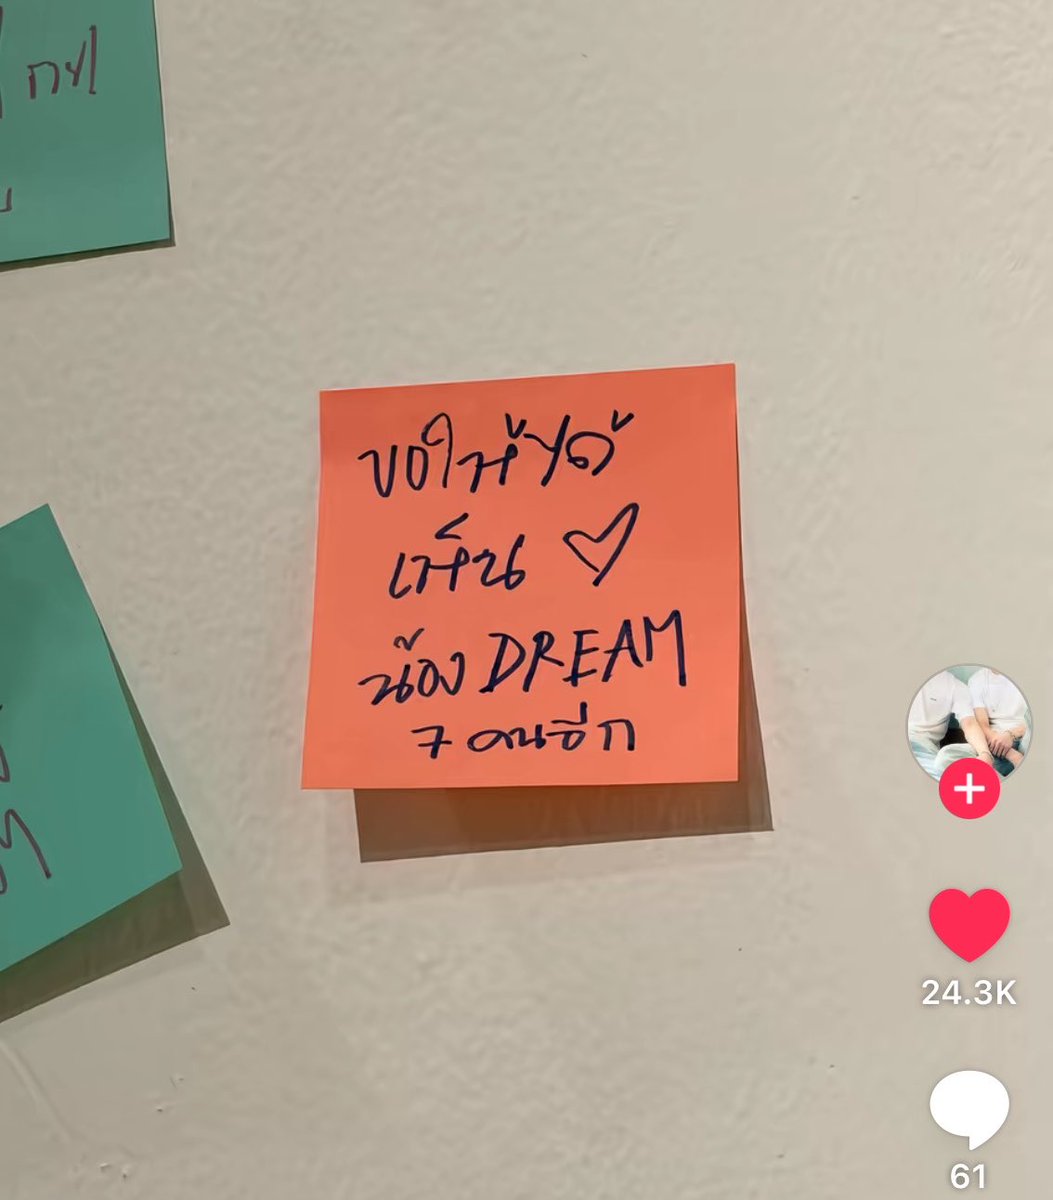 ขอให้ได้
เห็น ♡
น้อง DREAM
7 คนอีก
24.3K
61